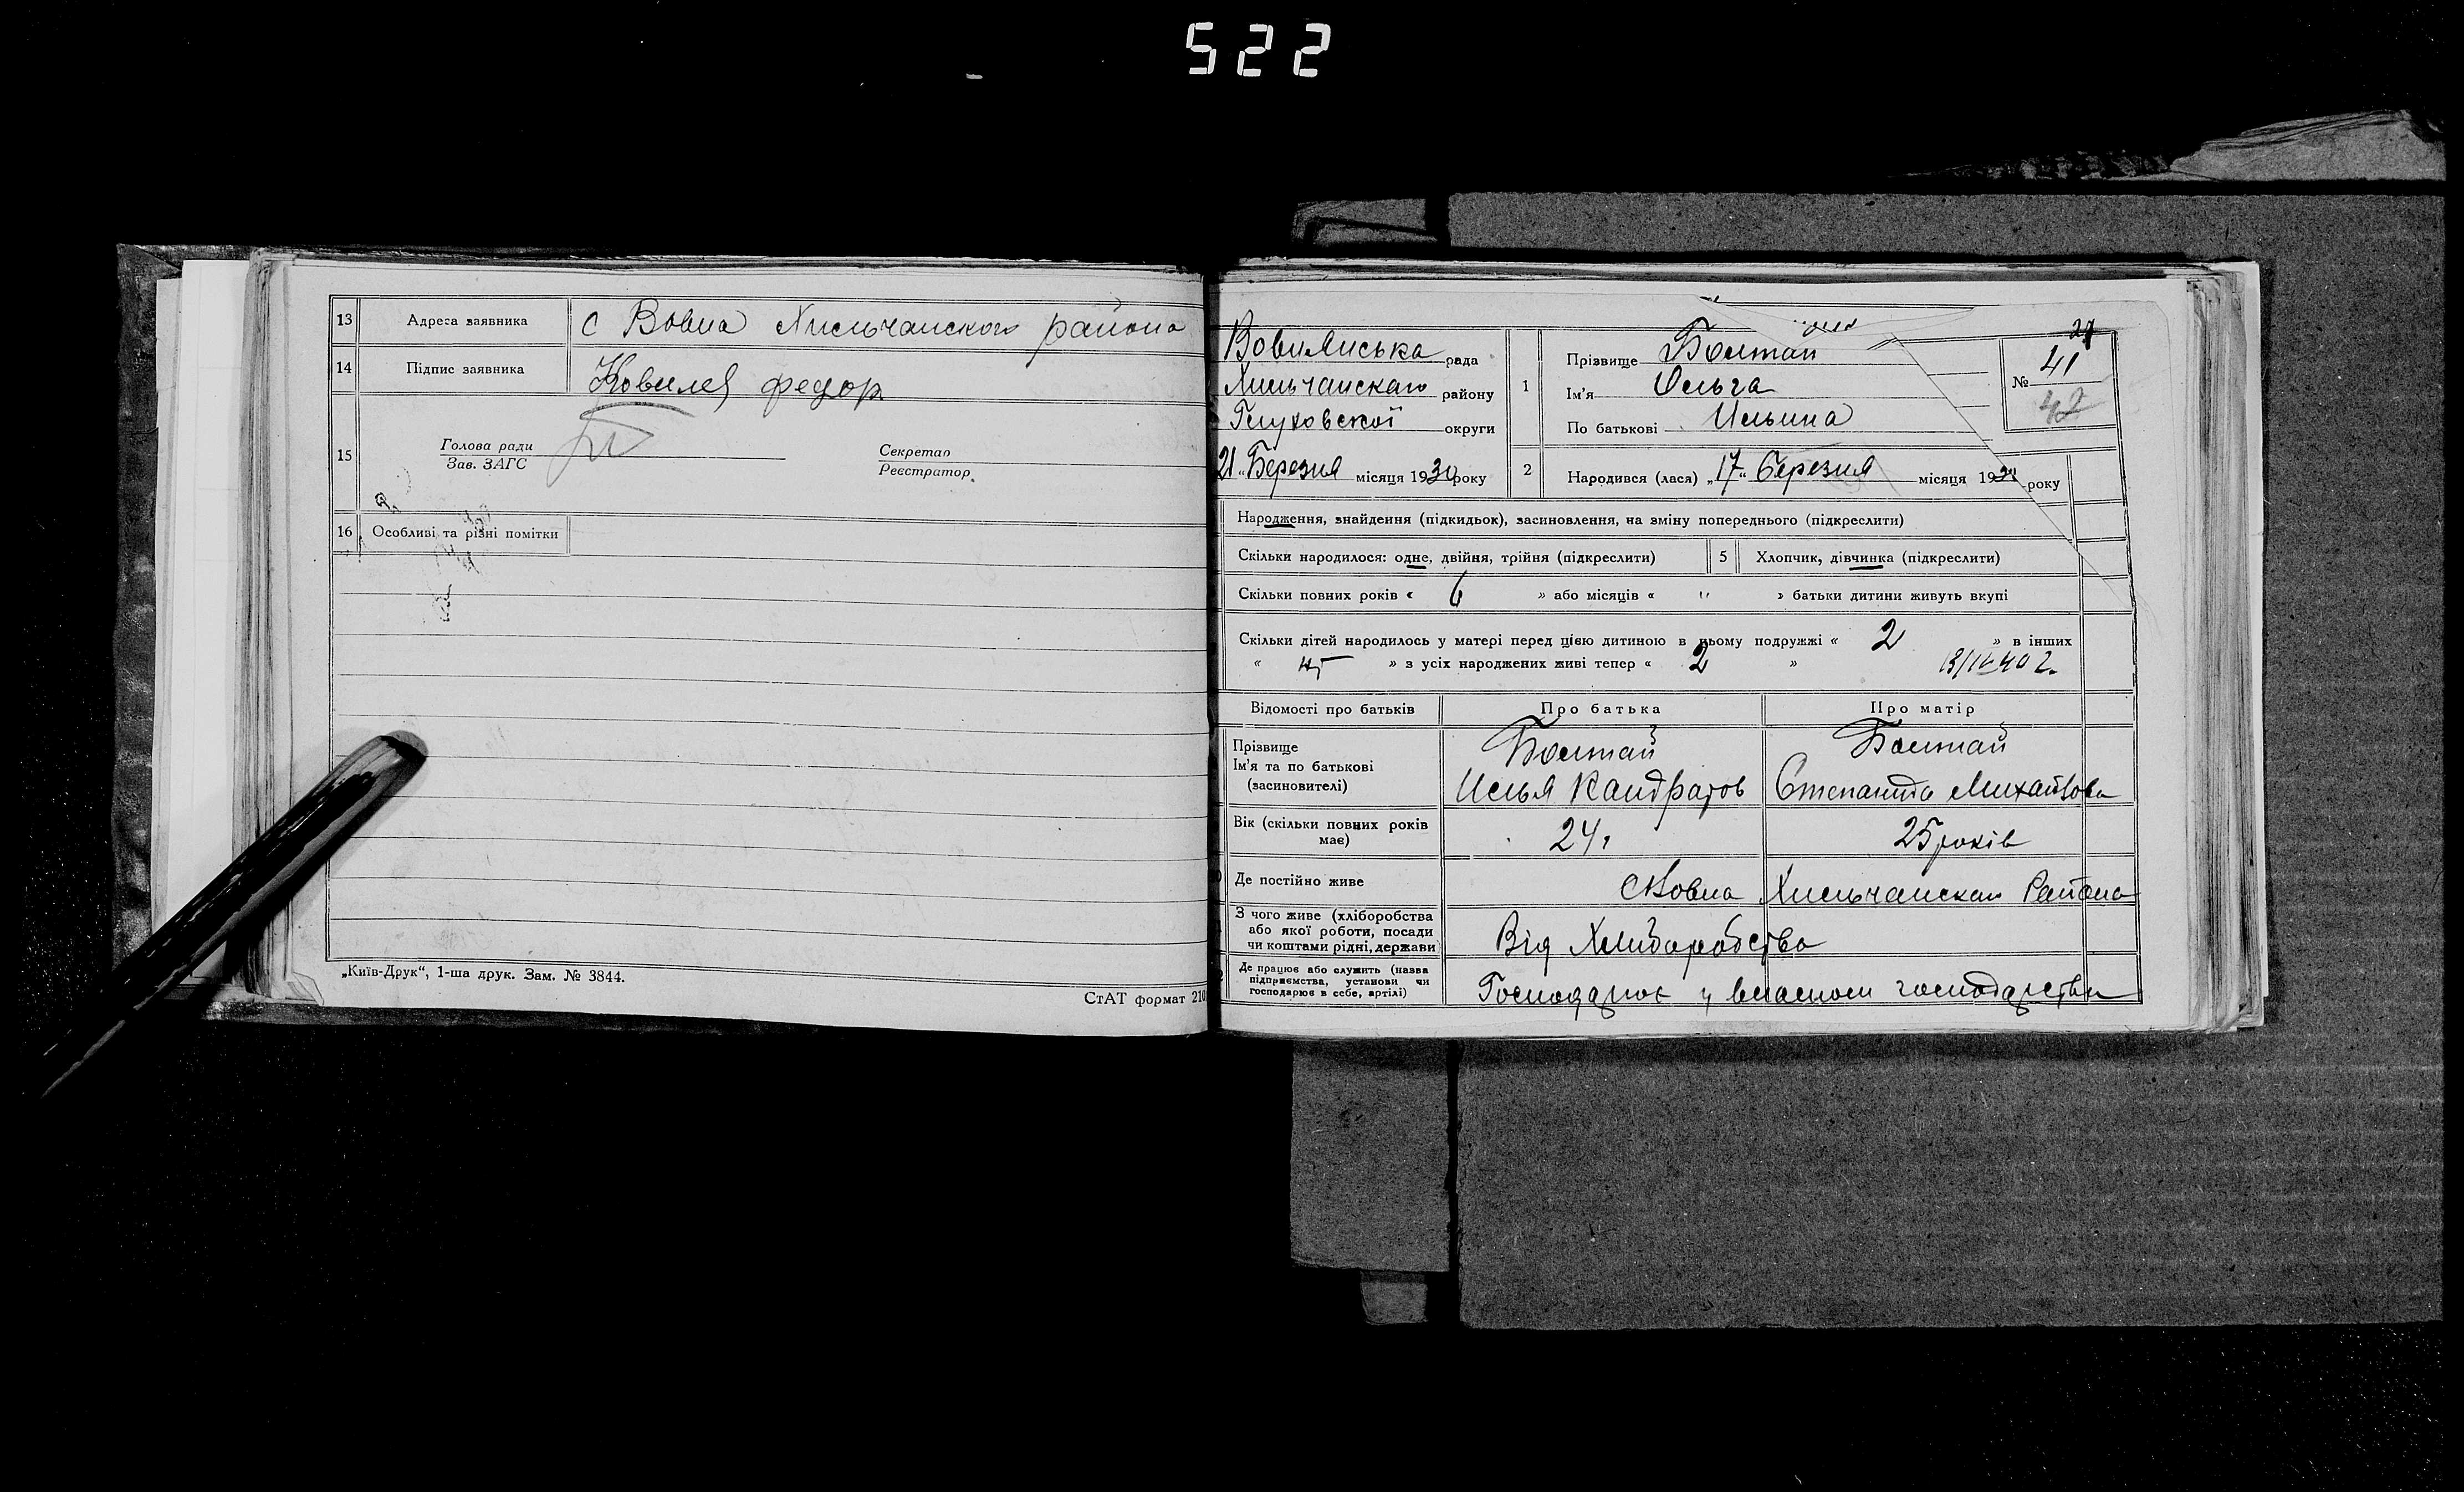 522
13 Адреса заявника с Вовна Хильчанского района
14 Підпис заявника Ковилев федор
15 Голова ради
Зав. ЗАГС
Секретар
Реєстратор
16 Особливі та різні помітки
„Київ-Друк“, 1-ша друк. Зам. № 3844.
СтАТ формат 210
рада
Хильчанскаго району
Глуховскої округи
21 „ Березня місяця 1930 року
1 Прізвище Болтай
Ім'я Ольга
По батькові Ильина
№ 41
42
2 Народився (лася) „17“ березня місяця 19 року
Народження, знайдення (підкидьок), засиновлення, на зміну попереднього (підкреслити)
Скільки народилося: одне, двійня, трійня (підкреслити) 5 Хлопчик, дівчинка (підкреслити)
Скільки повних років « 6 » або місяців « " » батьки дитини живуть вкупі
Скільки дітей народилось у матері перед цією дитиною в цьому подружжі « 2 » в інших
« ні » з усіх народжених живі тепер « 2 »
Відомості про батьків Про батька Про матір
Прізвище Болтай Болтай
Ім'я та по батькові
(засновителі) Илья Кандратов Степанида Михайлова
Вік (скільки повних років
має) 24 25 років
Де постійно живе с Вовна Хильчанскаго Района
З чого живе (хліборобства
або якої роботи, посади
чи коштами рідні, держави) Від Хлиборобства
Де працює або служить (назва
підприємства, установи чи
господарює в себе, артілі) Господарює у власном господарстви